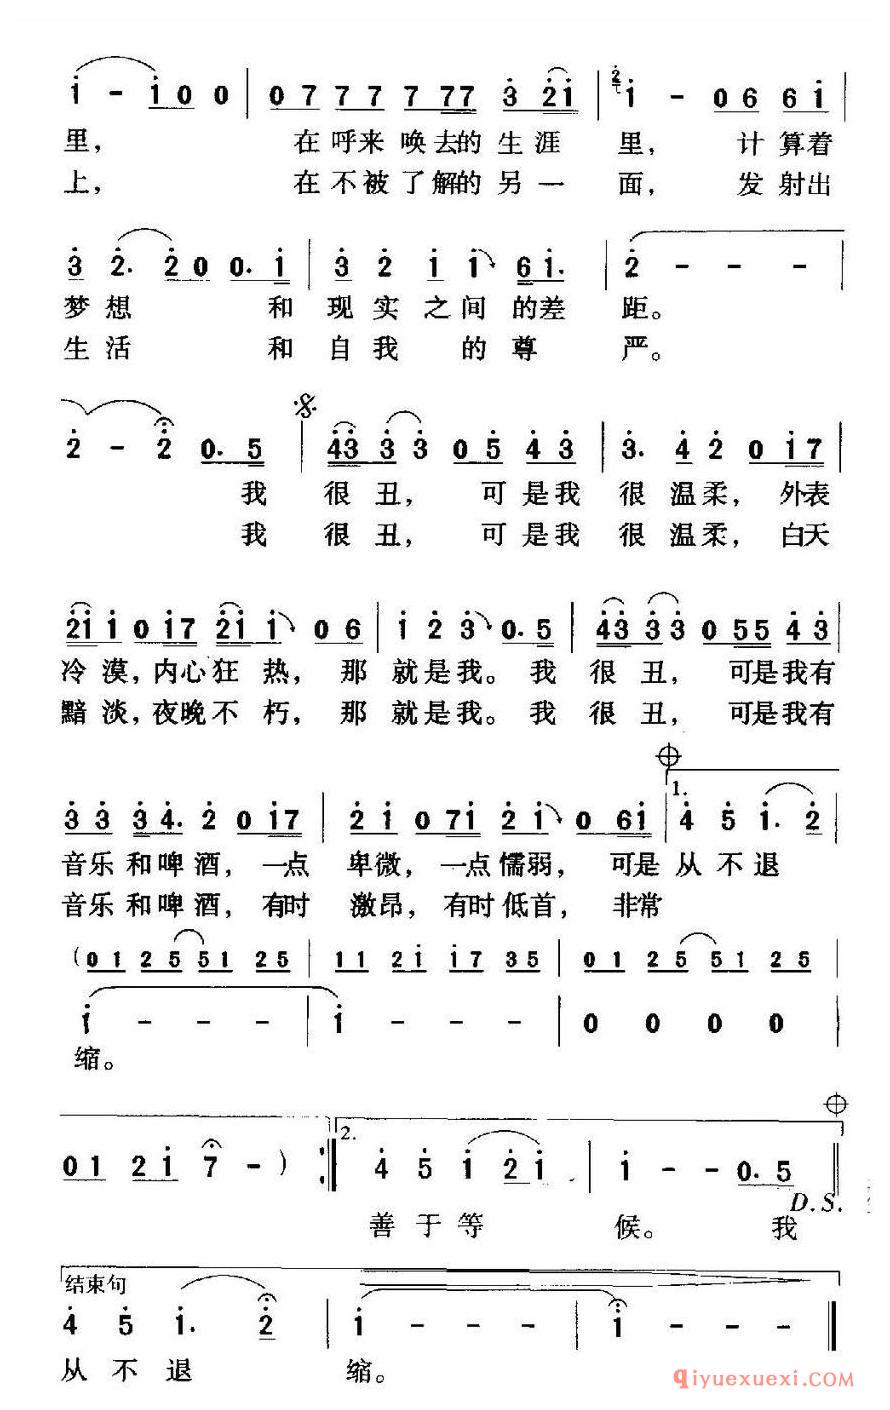 i - i 0 0 | 0 7 7 7 7 77 3 2i | 2 i - 0 6 6 i |
里， 在呼来唤去的生涯 里， 计算着
上， 在不被了解的另一 面， 发射出
3 2. 2 0 0. i | 3 2 i i 6 i. | 2 - - - |
梦想 和 现实之间 的差 距。
生活 和 自我 的尊 严。
2 - 2 0. 5 | 43 3 3 0 5 4 3 | 3. 4 2 0 i7 |
我 很丑， 可是我 很温柔， 外表
我 很丑， 可是我 很温柔， 白天
2i i 0 i7 2i i 0 6 | i 2 3 0. 5 | 43 3 3 0 55 4 3 |
冷漠，内心狂热， 那 就是我。我 很丑， 可是我有
黯淡，夜晚不朽， 那 就是我。我 很丑， 可是我有
1.
3 3 3 4. 2 0 i7 | 2 i 0 7i 2 i 0 6i | 4 5 i. 2
音乐和啤酒， 一点 卑微，一点懦弱， 可是从不退
音乐和啤酒， 有时 激昂，有时低首， 非常
( 0 1 2 5 5 1 2 5 | 1 1 2 i i 7 3 5 | 0 1 2 5 5 1 2 5 |
i - - - | i - - - | 0 0 0 0 |
缩。
0 1 2 i 7 - ) :‖ 2. 4 5 i 2 i | i - - 0. 5 ‖
D.S.
善于等 候。 我
结束句
4 5 i. 2 | i - - - | i - - - ‖
从不退 缩。
qiyuexuexi.COM